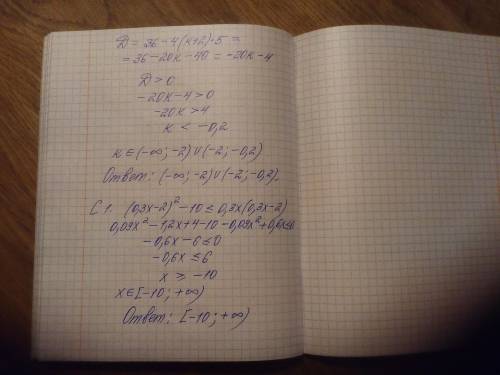 D = 36 - 4(k+2)·5 =
= 36 - 20k - 40 = -20k - 4
D > 0
-20k - 4 > 0
-20k > 4
k < -0,2
k ∈ (-∞; -2) ∪ (-2; -0,2)
Ответ: (-∞; -2) ∪ (-2; -0,2).
C1. (0,3x-2)² - 10 ≤ 0,3x(0,3x-2)
0,09x² - 1,2x + 4 - 10 - 0,09x² + 0,6x ≤ 0
-0,6x - 6 ≤ 0
-0,6x ≤ 6
x ≥ -10
x ∈ [-10; +∞)
Ответ: [-10; +∞)